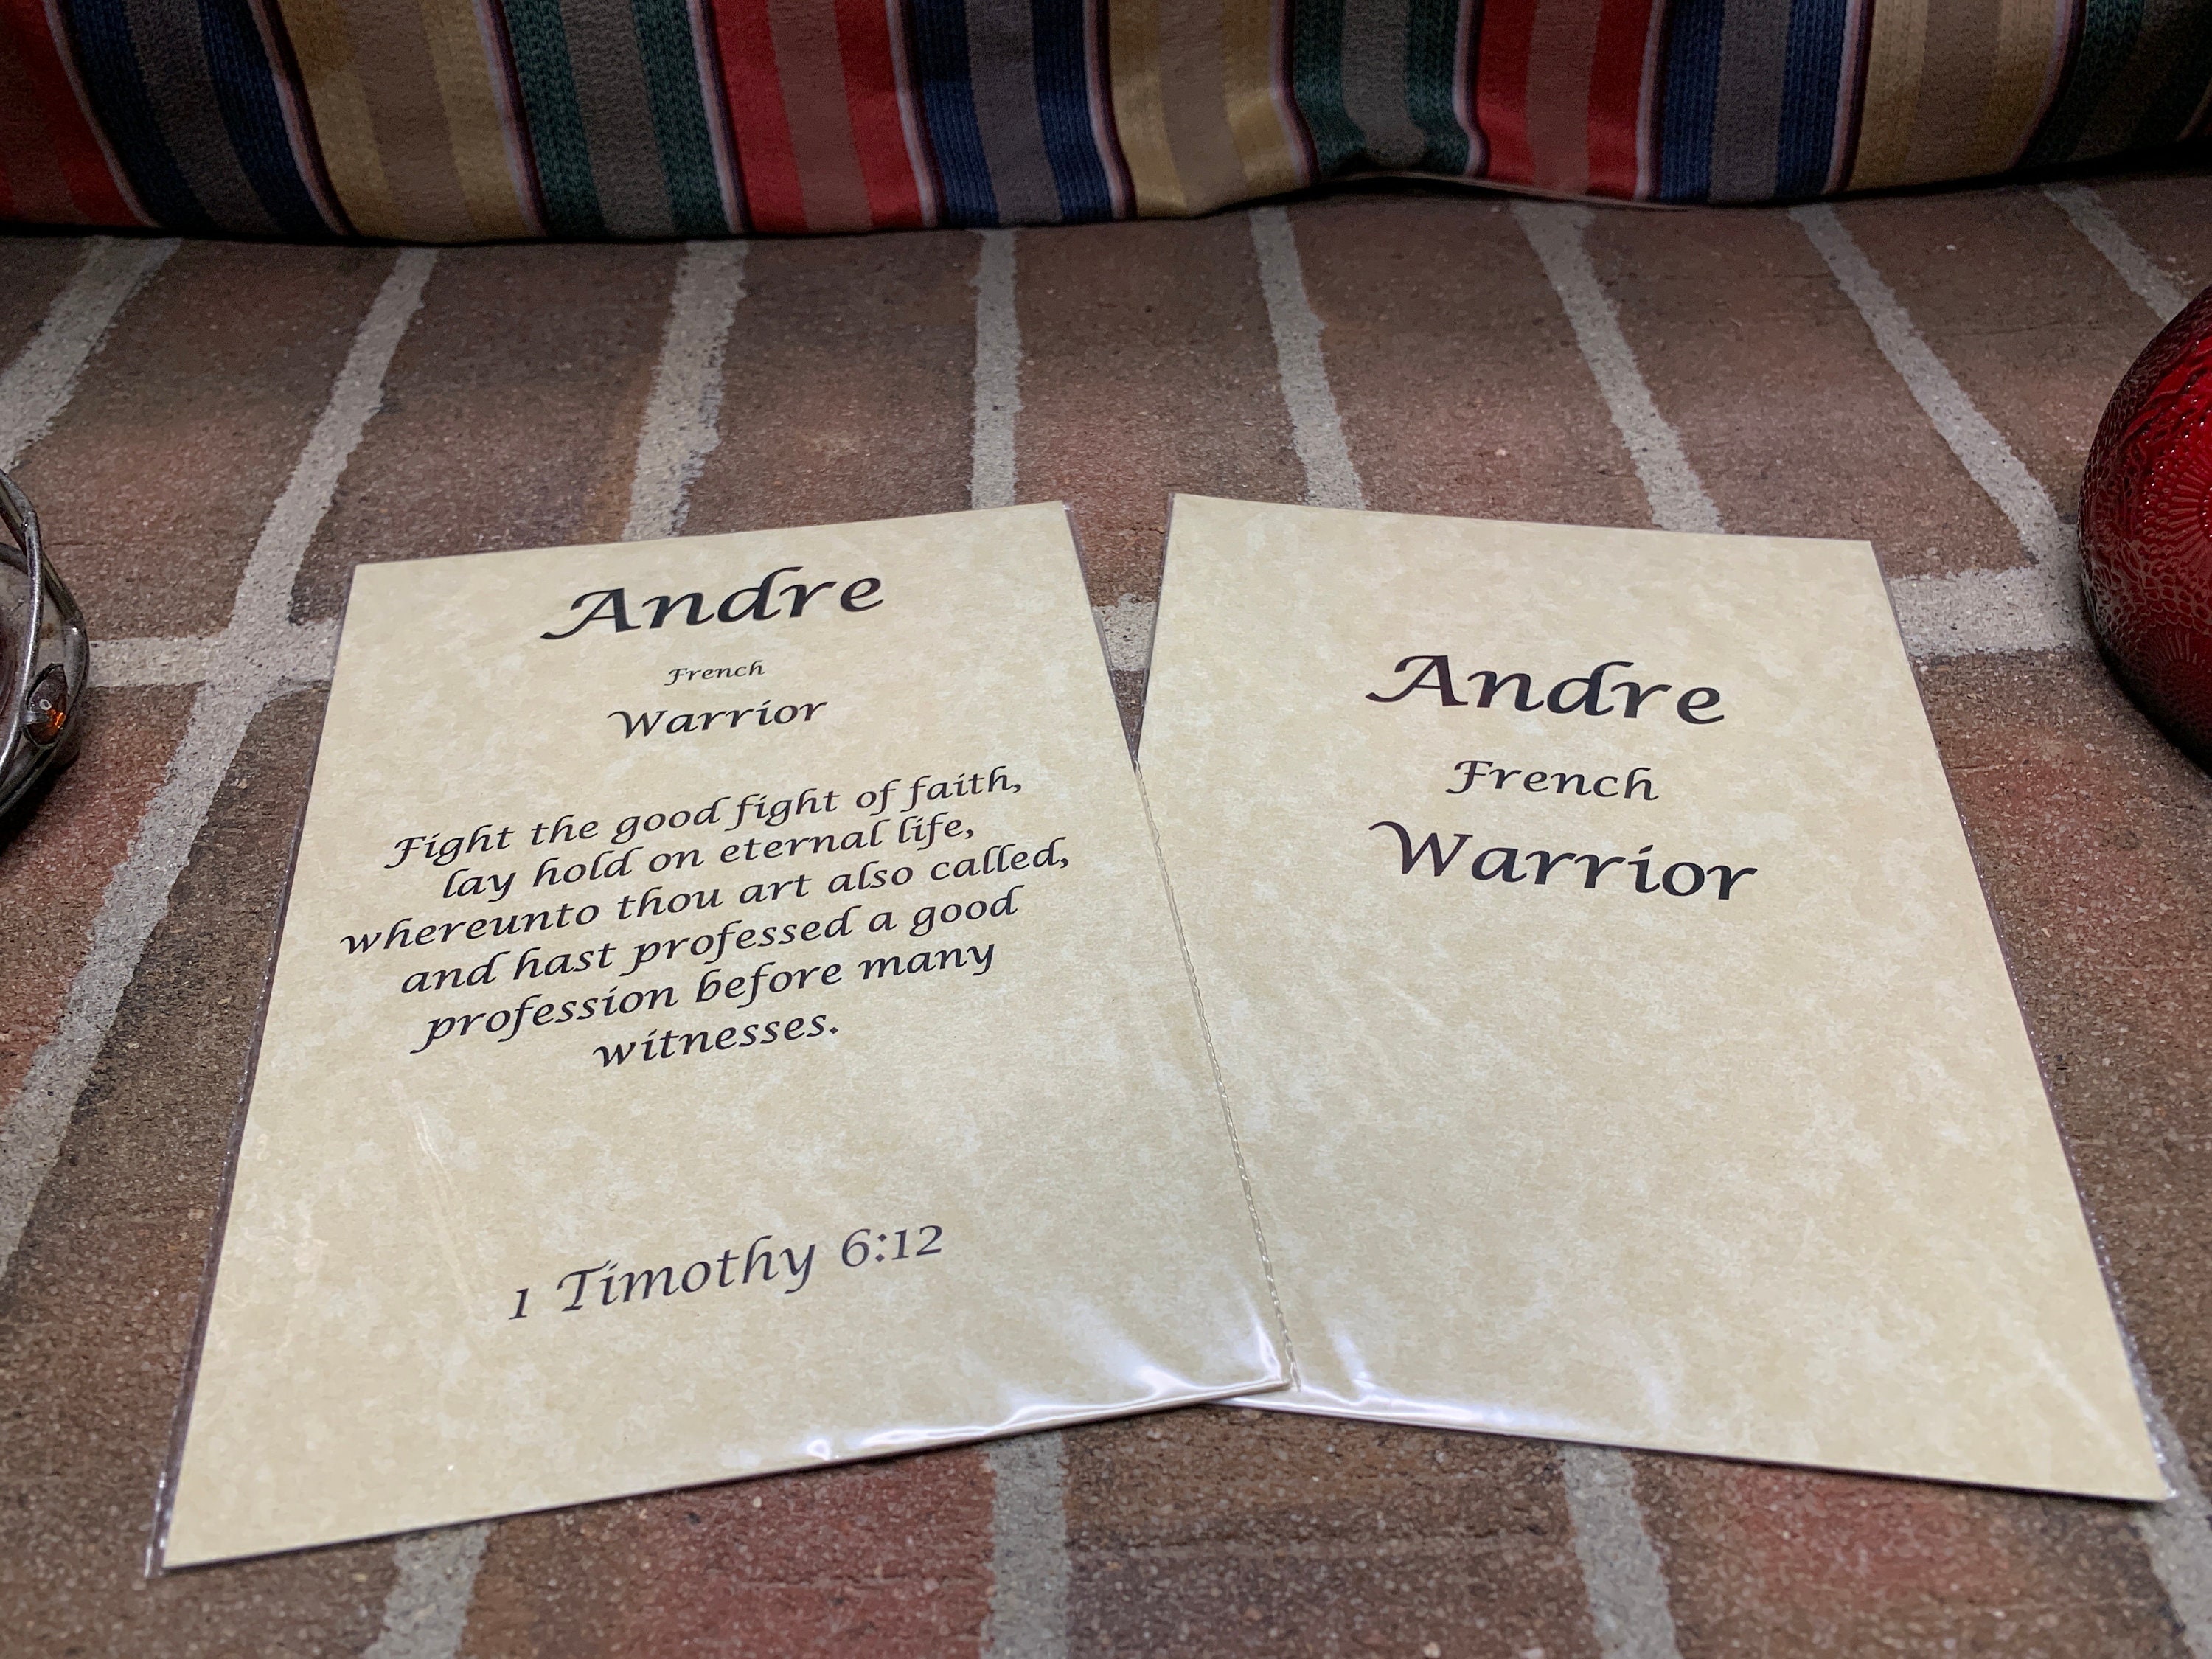 Andre
French
Warrior
Fight the good fight of faith,
lay hold on eternal life,
whereunto thou art also called,
and hast professed a good
profession before many
witnesses.
1 Timothy 6:12
Andre
French
Warrior